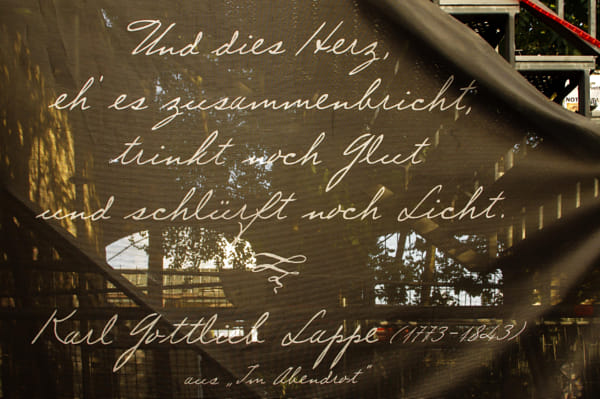 Und dies Herz,
eh' es zusammenbricht,
trinkt noch Glut
und schlürft noch Licht.
Karl Gottlieb Lappe (1773-1843)
aus „Im Abendrot"
NOT